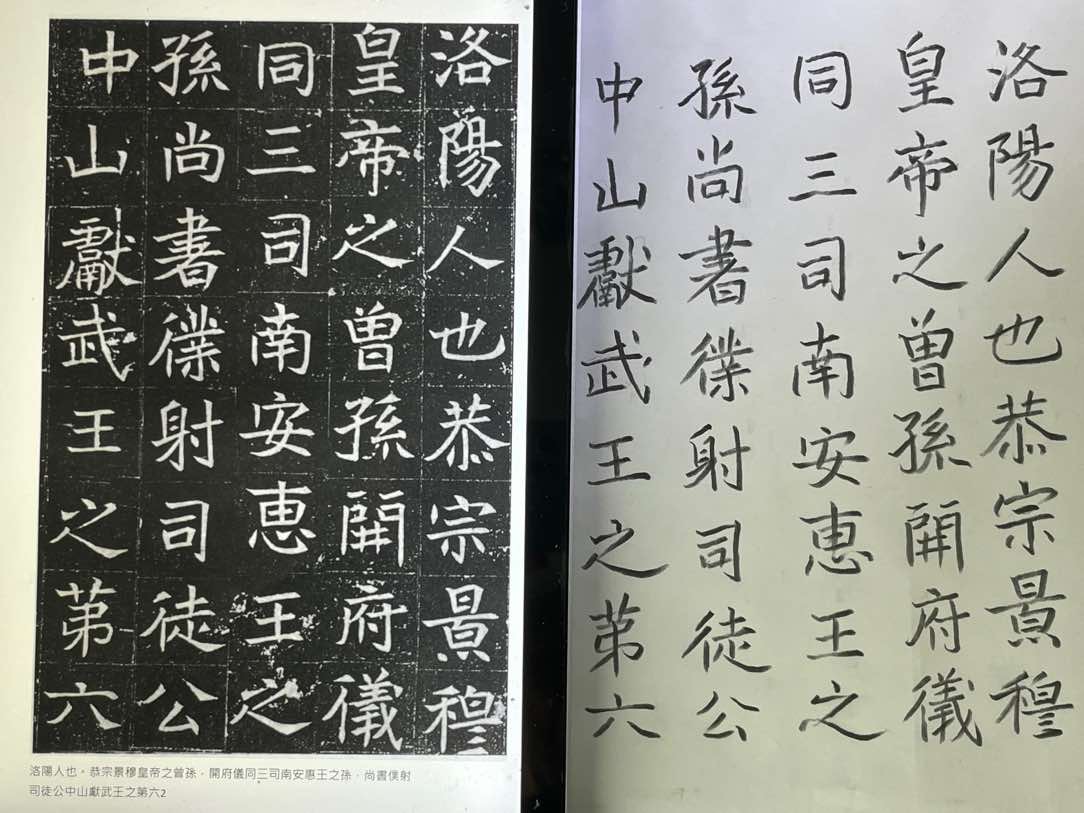 洛陽人也恭宗景穆
皇帝之曽孫開府儀
同三司南安惠王之
孫尚書僕射司徒公
中山獻武王之第六
洛陽人也。恭宗景穆皇帝之曾孫，開府儀同三司南安惠王之孫，尚書僕射
司徒公中山獻武王之第六2
洛陽人也恭宗景穆
皇帝之曽孫開府儀
同三司南安惠王之
孫尚書僕射司徒公
中山獻武王之第六